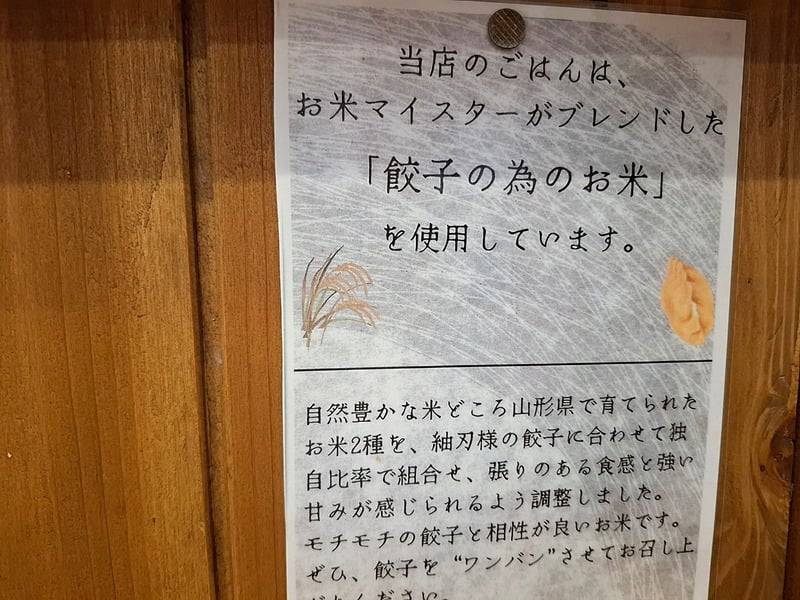 当店のごはんは、
お米マイスターがブレンドした
「餃子の為のお米」
を使用しています。
自然豊かな米どころ山形県で育てられた
お米2種を、紬刃様の餃子に合わせて独
自比率で組合せ、張りのある食感と強い
甘みが感じられるよう調整しました。
モチモチの餃子と相性が良いお米です。
ぜひ、餃子を“ワンバン”させてお召し上
がりください。